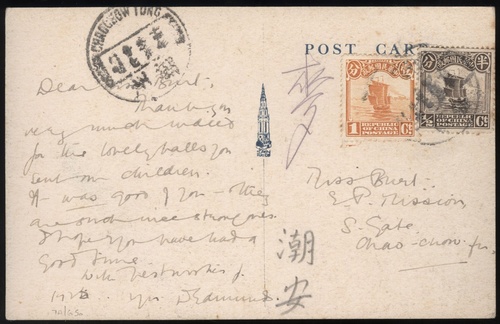 CHAOCHOW FU
POST CARD
Dear Miss Burt,
Thank you
very much indeed
for the lovely balls you
sent our children.
It was good of you - they
are such nice strong ones.
I hope you have had a
good time.
With best wishes
yrs
1
REPUBLIC
OF CHINA
POSTAGE
1 Ct
分 半
REPUBLIC
OF CHINA
POSTAGE
1/2 Ct
Miss Burt
E.P. Mission
S. Gate
Chao-chow-fu.
潮
安